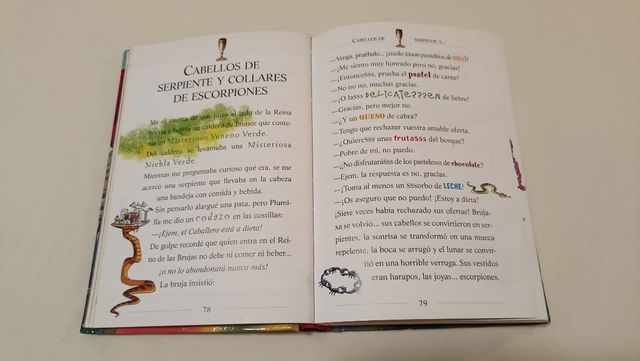 CABELLOS DE
SERPIENTE Y COLLARES
DE ESCORPIONES
Me di cuenta de que justo al lado de la Reina
hervía y hervía un caldero de bronce que conte-
nía un Misterioso Veneno Verde.
Del caldero se levantaba una Misteriosa
Niebla Verde.
Mientras me preguntaba curioso qué era, se me
acercó una serpiente que llevaba en la cabeza
una bandeja con comida y bebida.
Sin pensarlo alargué una pata, pero Plumi-
lla me dio un codazo en las costillas:
—¡Ejem, el Caballero está a dieta!
De golpe recordé que quien entra en el Rei-
no de las Brujas no debe ni comer ni beber...
¡o no lo abandonará nunca más!
La bruja insistió:
78
CABELLOS DE SERPIENTE Y...
—Venga, pruébelo... ¡sssólo ssson pastelitos de
—¡Me siento muy honrado pero no, gracias!
—¡Entoncesss, prueba el pastel de carne!
—No no no, muchas gracias.
—¡O lasss DELICATEZZZEN de liebre!
—Gracias, pero mejor no.
—¿Y un QUESO de cabra?
—Tengo que rechazar vuestra amable oferta.
—¿Quieresss unas frutasss del bosque?
—Pobre de mí, no puedo.
—¿No disfrutarásss de los pastelesss de chocolate?
—Ejem, la respuesta es no, gracias.
—¡Toma al menos un sssorbo de LECHE!
—¡Os aseguro que no puedo! ¡Estoy a dieta!
¡Siete veces había rechazado sus ofertas! Bruja-
xa se volvió... sus cabellos se convirtieron en ser-
pientes, la sonrisa se transformó en una mueca
repelente, la boca se arrugó y el lunar se convir-
tió en una horrible verruga. Sus vestidos
eran harapos, las joyas... escorpiones.
79